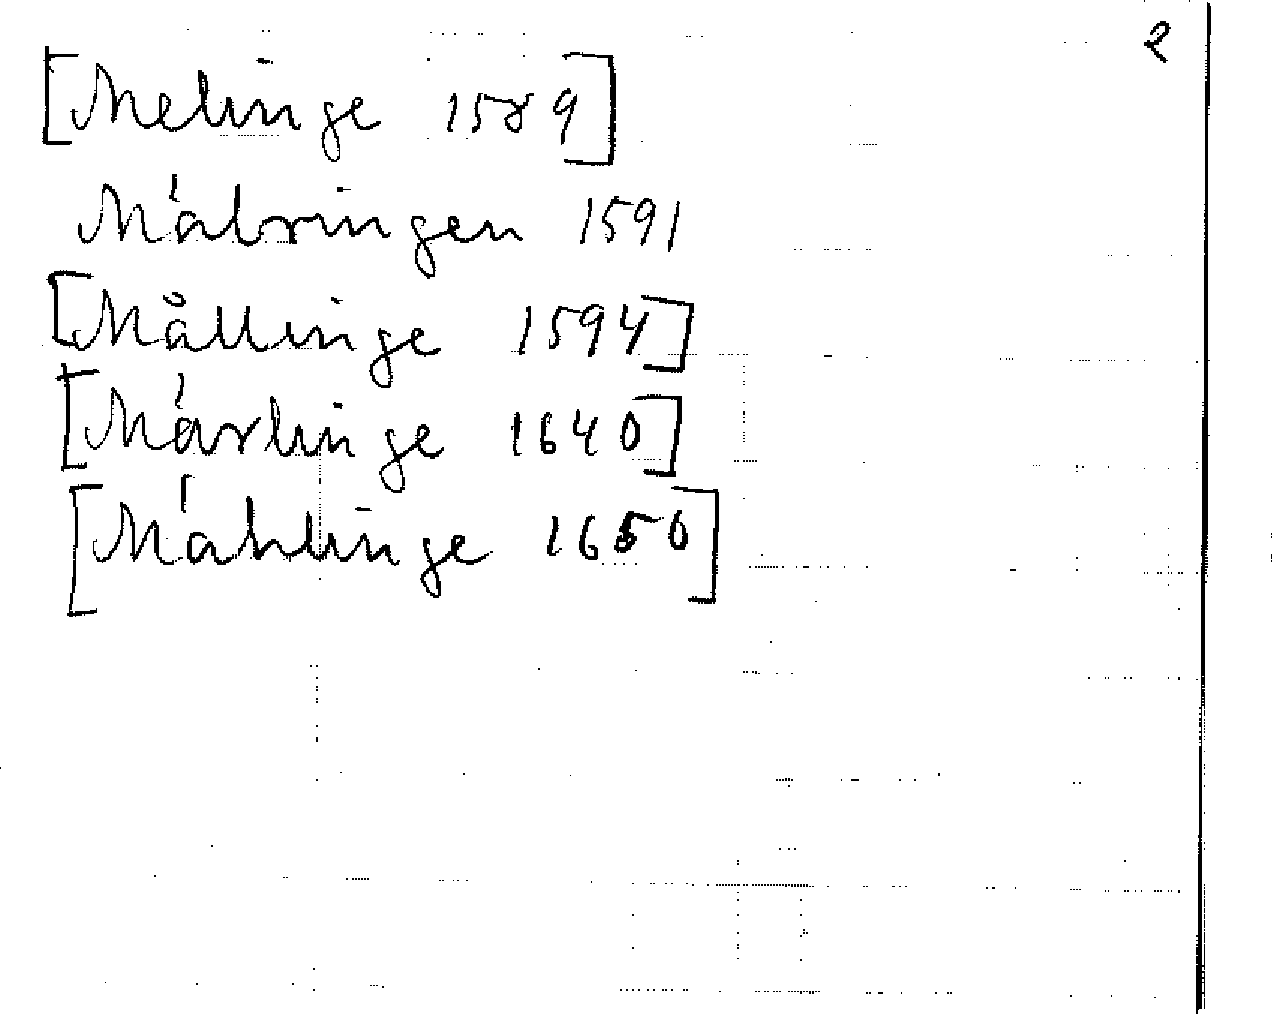 2
[Melinge 1589]
Málringen 1591
[Mållinge 1594]
[Márlinge 1640]
[Máhlinge 1650]